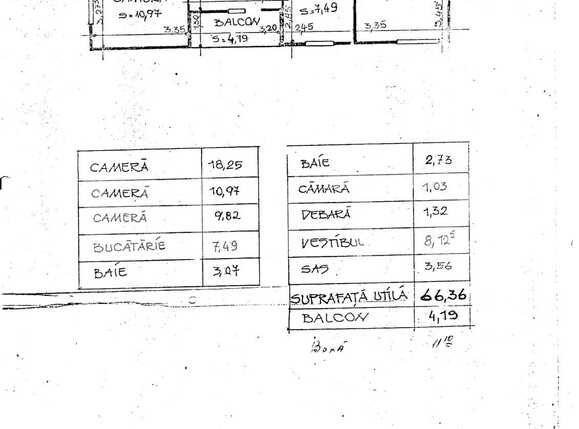 S=10,97
3,35
BALCON
3,20
S=4,19
2,45
S=7,49
3,35
CAMERĂ 18,25
CAMERĂ 10,97
CAMERĂ 9,82
BUCĂTĂRIE 7,49
BAIE 3,07
BAIE 2,73
CĂMARĂ 1,03
DEBARĂ 1,32
VESTIBUL 8,12⁵
SAS 3,56
SUPRAFAȚĂ UTILĂ 66,36
BALCON 4,19
Boxă 11¹⁰